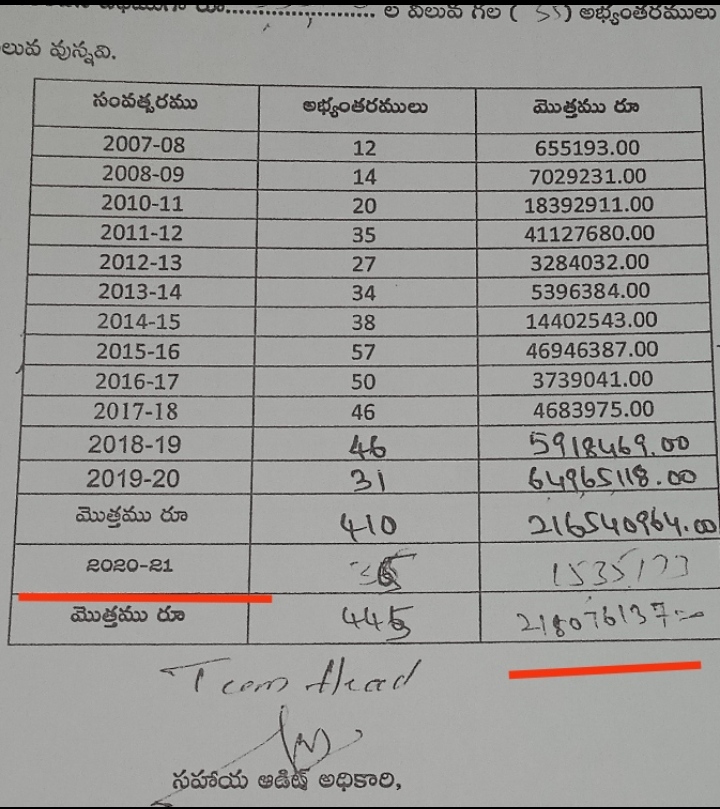 రూ....................... ల విలువ గల ( 35) అభ్యంతరములు
లువ వున్నవి.
సంవత్సరము అభ్యంతరములు మొత్తము రూ
2007-08 12 655193.00
2008-09 14 7029231.00
2010-11 20 18392911.00
2011-12 35 41127680.00
2012-13 27 3284032.00
2013-14 34 5396384.00
2014-15 38 14402543.00
2015-16 57 46946387.00
2016-17 50 3739041.00
2017-18 46 4683975.00
2018-19 46 5918469.00
2019-20 31 64965118.00
మొత్తము రూ 410 216540964.00
2020-21 1535173
మొత్తము రూ 445 218076137=00
Team Head
సహాయ ఆడిట్ అధికారి,